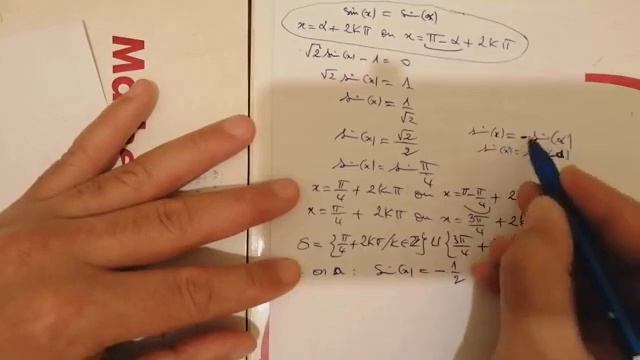 sin(x) = sin(α)
x = α + 2kπ ou x = π - α + 2kπ
√2 sin(x) - 1 = 0
√2 sin(x) = 1
sin(x) = 1/√2
sin(x) = √2/2
sin(x) = sin π/4
x = π/4 + 2kπ ou x = π - π/4 + 2
x = π/4 + 2kπ ou x = 3π/4 + 2k
S = {π/4 + 2kπ / k ∈ Z} U {3π/4 +
on a : sin(x) = - 1/2
sin(x) = - sin(α)
sin(x) =